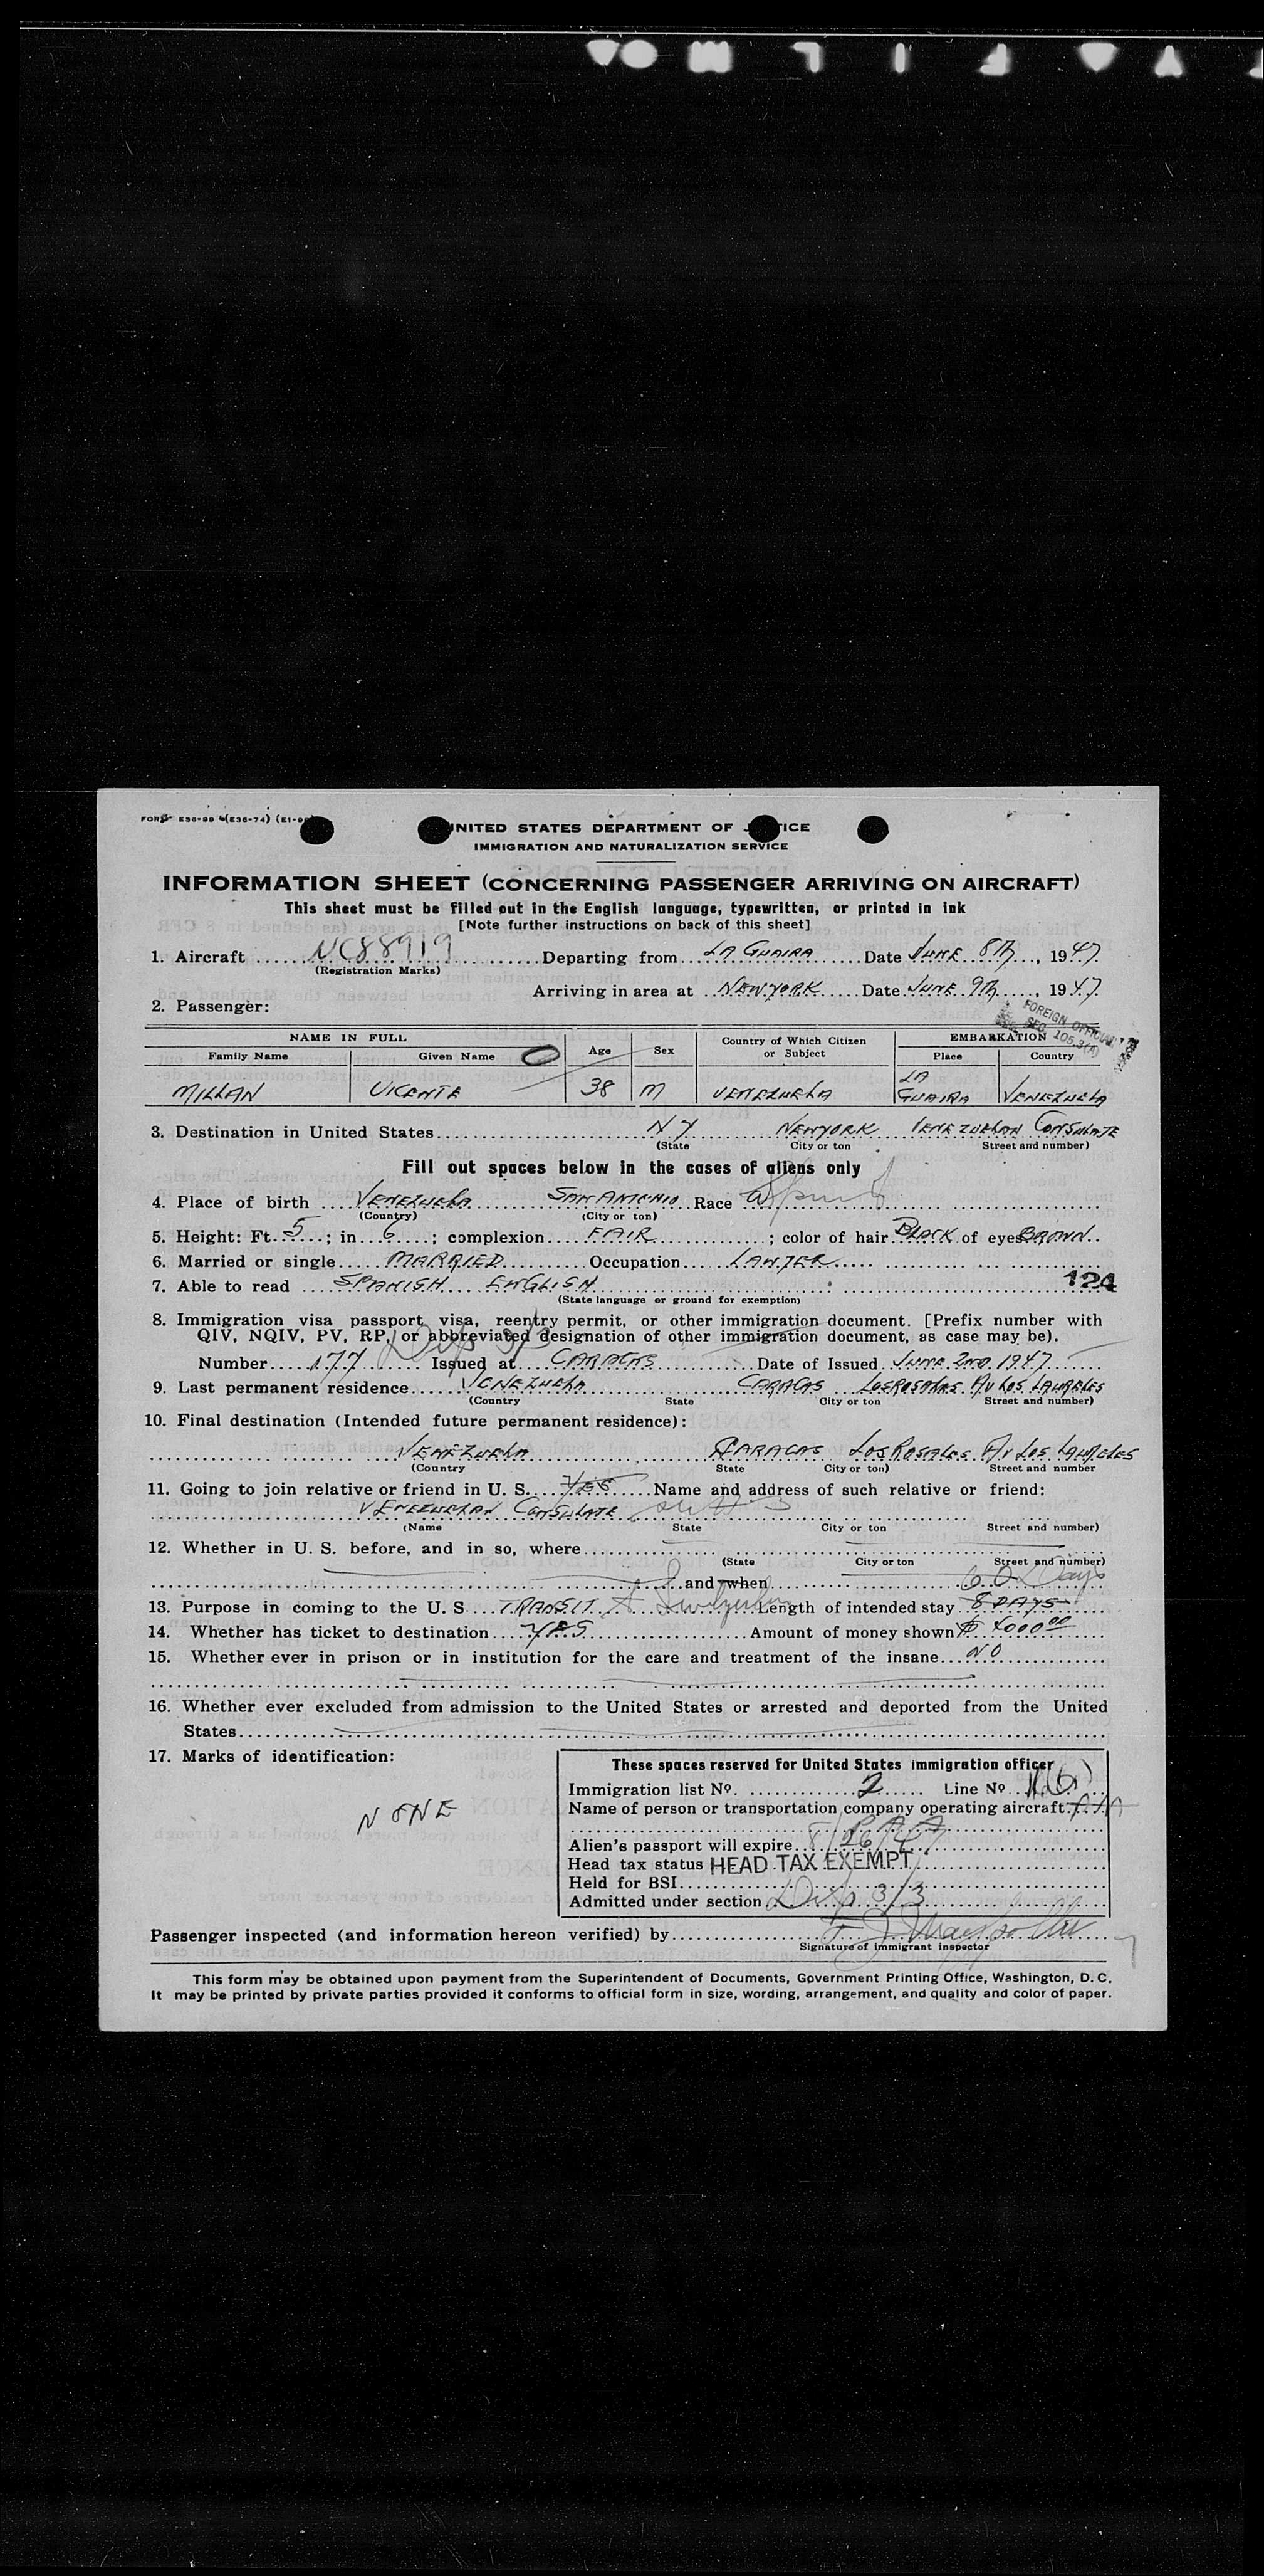 UNITED STATES DEPARTMENT OF JUSTICE
IMMIGRATION AND NATURALIZATION SERVICE
INFORMATION SHEET (CONCERNING PASSENGER ARRIVING ON AIRCRAFT)
This sheet must be filled out in the English language, typewritten, or printed in ink
[Note further instructions on back of this sheet]
1. Aircraft NC88919 Departing from LA GUAIRA Date JUNE 8th, 1947
(Registration Marks)
Arriving in area at NEW YORK Date JUNE 9th, 1947
2. Passenger:
FOREIGN OFFICIAL
SEC. 105.3(A)
NAME IN FULL Age Sex Country of Which Citizen or Subject EMBARKATION
Family Name Given Name Place Country
MILLAN VICENTE 38 M VENEZUELA LA GUAIRA VENEZUELA
3. Destination in United States NY NEW YORK VENEZUELAN CONSULATE
(State City or ton Street and number)
Fill out spaces below in the cases of aliens only
4. Place of birth VENEZUELA SAN ANTONIO Race
(Country) (City or ton)
5. Height: Ft. 5; in 6; complexion FAIR; color of hair BLACK of eyes BROWN
6. Married or single MARRIED Occupation LAWYER
7. Able to read SPANISH ENGLISH 124
(State language or ground for exemption)
8. Immigration visa passport visa, reentry permit, or other immigration document. [Prefix number with
QIV, NQIV, PV, RP, or abbreviated designation of other immigration document, as case may be).
Dip 3/3
Number 177 Issued at CARACAS Date of Issued JUNE 2nd 1947
9. Last permanent residence VENEZUELA CARACAS LOS ROSALES AV LOS LAURELES
(Country State City or ton Street and number)
10. Final destination (Intended future permanent residence):
VENEZUELA CARACAS LOS ROSALES AV LOS LAURELES
(Country State City or ton) Street and number
11. Going to join relative or friend in U. S. YES Name and address of such relative or friend:
VENEZUELAN CONSULATE
(Name State City or ton Street and number)
12. Whether in U. S. before, and in so, where
(State City or ton Street and number)
and when 60 Days
13. Purpose in coming to the U. S TRANSIT Length of intended stay 8 DAYS
14. Whether has ticket to destination YES Amount of money shown $ 4000.00
15. Whether ever in prison or in institution for the care and treatment of the insane NO
16. Whether ever excluded from admission to the United States or arrested and deported from the United
States
17. Marks of identification:
NONE
These spaces reserved for United States immigration officer
Immigration list No. 2 Line No
Name of person or transportation company operating aircraft
P A A
Alien's passport will expire 8/26/47
Head tax status HEAD TAX EXEMPT
Held for BSI
Admitted under section Dip 3/3
Passenger inspected (and information hereon verified) by
Signature of immigrant inspector
This form may be obtained upon payment from the Superintendent of Documents, Government Printing Office, Washington, D. C.
It may be printed by private parties provided it conforms to official form in size, wording, arrangement, and quality and color of paper.